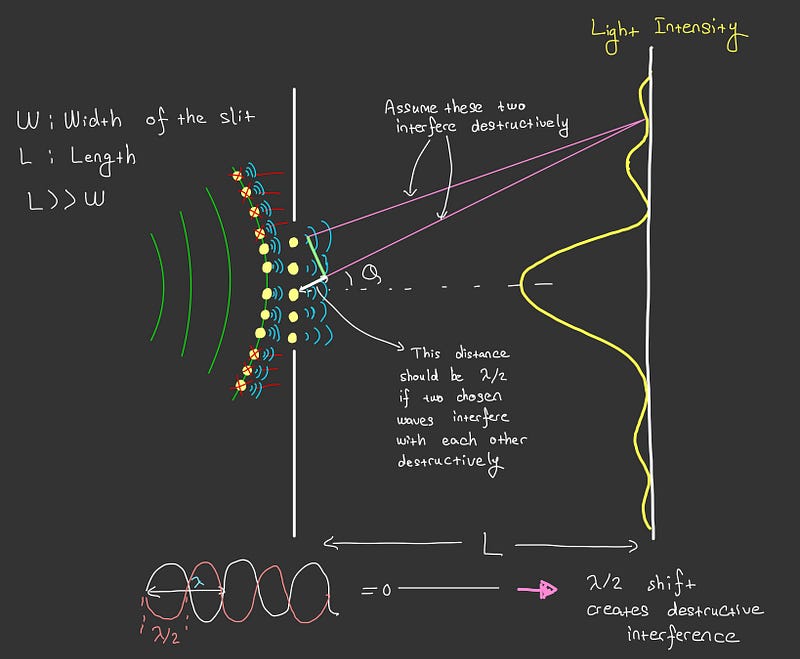 Light Intensity
W : Width of the slit
L : Length
L >> W
Assume these two
interfere destructively
θ
This distance
should be λ/2
if two chosen
waves interfere
with each other
destructively
L
λ
λ/2
= 0
λ/2 shift
creates destructive
interference